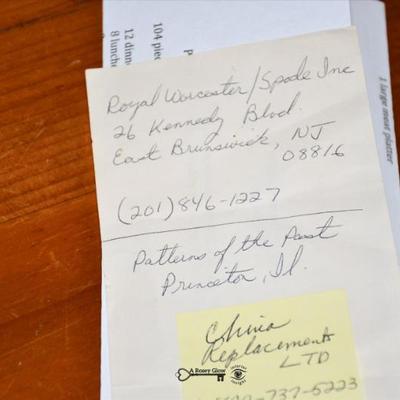 104 piec
12 dinn
8 lunche
1 large meat platter
Royal Worcester/Spode Inc
26 Kennedy Blvd.
East Brunswick, NJ
08816
(201) 846-1227
Patterns of the Past
Princeton, Il.
China
Replacement
LTD
737-5223
A Rosey Glow